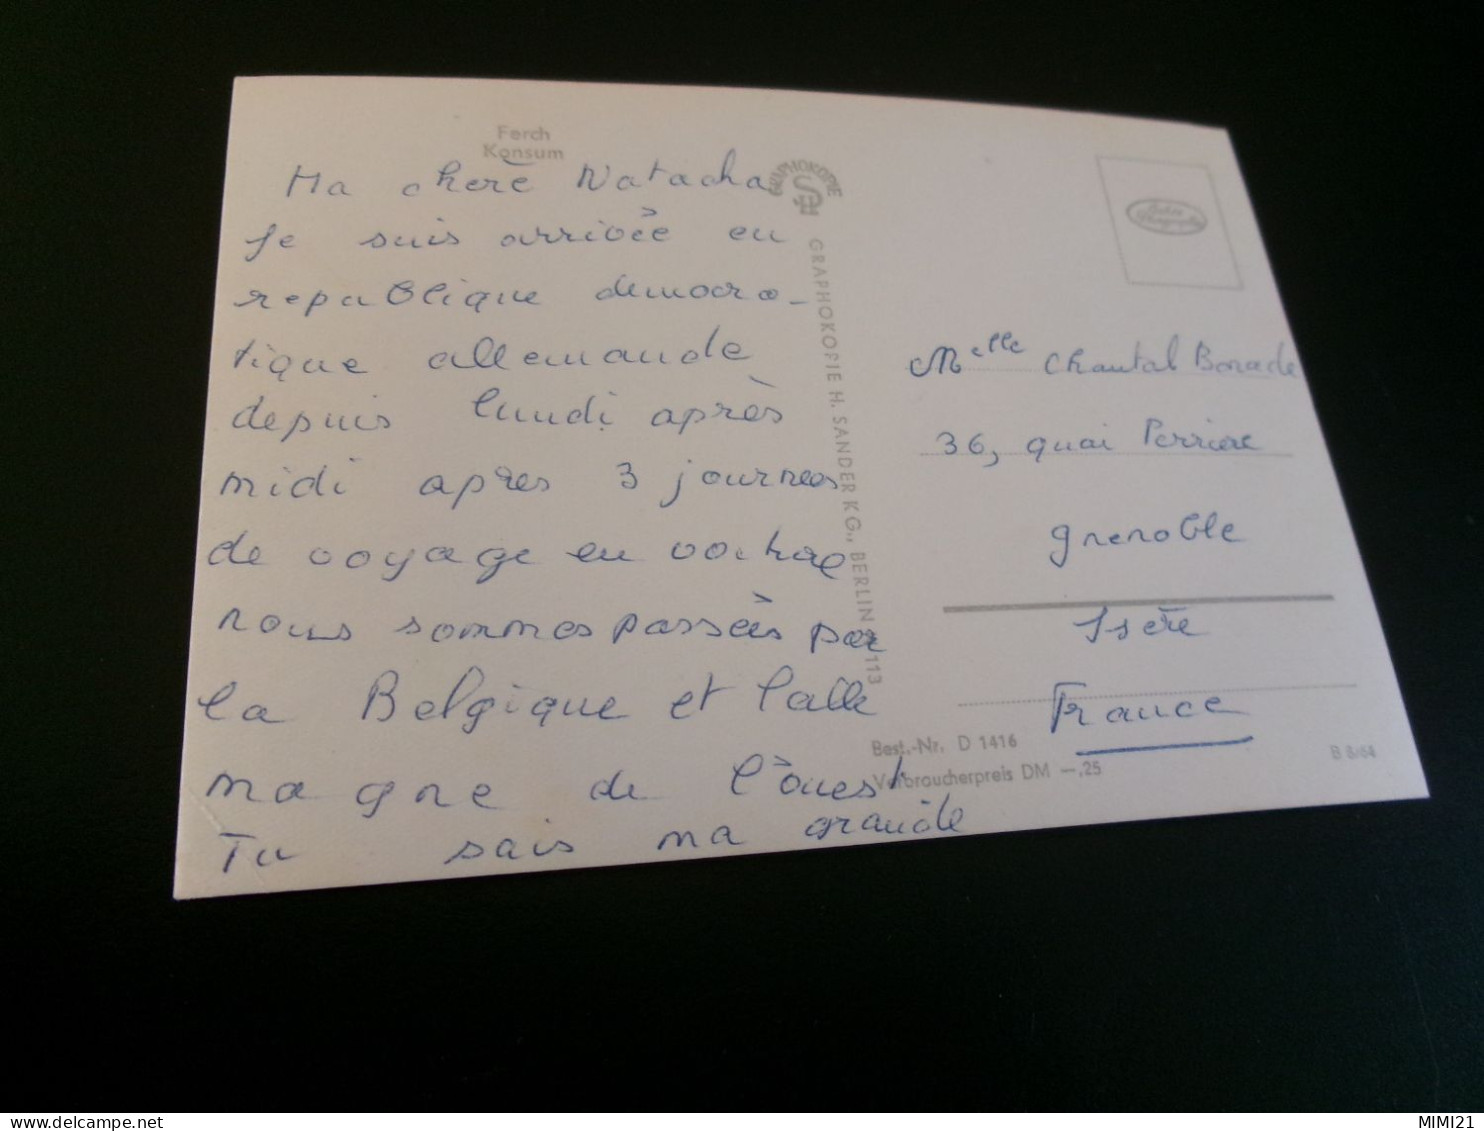 Ferch
Konsum
Ma chere Natacha
Je suis arrivée en
republique democra-
tique allemande
depuis lundi après
midi apres 3 journees
de voyage en
nous sommes passées par
la Belgique et l'alle
magne de l'ouest
Tu sais ma grande
GRAPHOKOPIE
GRAPHOKOPIE H. SANDER KG., BERLIN 113
Melle Chantal
36, quai Perriere
grenoble
Isère
France
Best.-Nr. D 1416
Verbraucherpreis DM —,25
B 8/64
MIMI21
delcampe.net